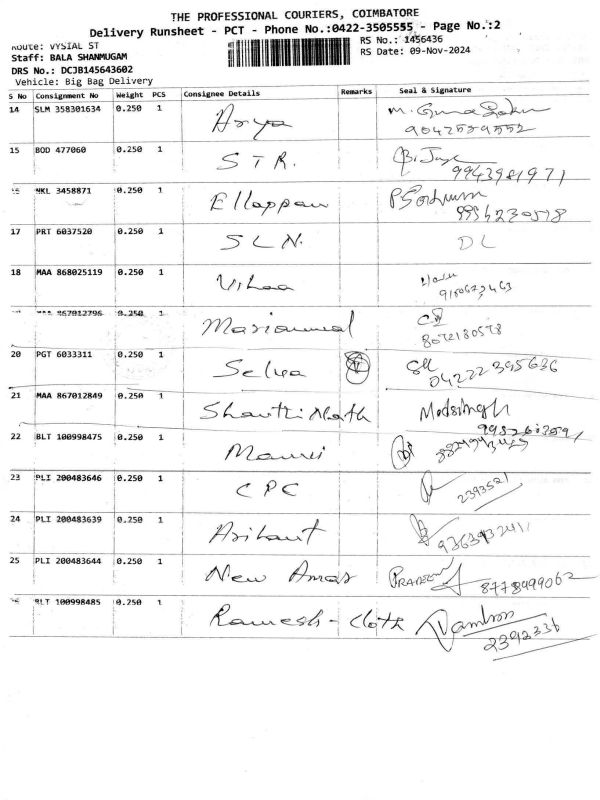 THE PROFESSIONAL COURIERS, COIMBATORE
Delivery Runsheet - PCT - Phone No.:0422-3505555 - Page No.:2
Route: VYSIAL ST
RS No.: 1456436
Staff: BALA SHANMUGAM
RS Date: 09-Nov-2024
DRS No.: DCJB145643602
Vehicle: Big Bag Delivery
S No Consignment No Weight PCS Consignee Details Remarks Seal & Signature
14 SLM 358301634 0.250 1 Arya
9042559552
15 BOD 477060 0.250 1 STR.
9943981971
16 NKL 3458871 0.250 1 Ellappan
9994230578
17 PRT 6037520 0.250 1 SLN. DL
18 MAA 868025119 0.250 1 Vihaa
MAA 867012796 0.250 1 Mariammal
8072180578
20 PGT 6033311 0.250 1 Selva
04222395636
21 MAA 867012849 0.250 1 Shanthi Nath Modsingh
22 BLT 100998475 0.250 1
23 PLI 200483646 0.250 1 CPC
2393521
24 PLI 200483639 0.250 1 Arihant
25 PLI 200483644 0.250 1 New Amar PRAVEEN
8778499062
26 BLT 100998485 0.250 1 Ramesh - Cloth
2392336